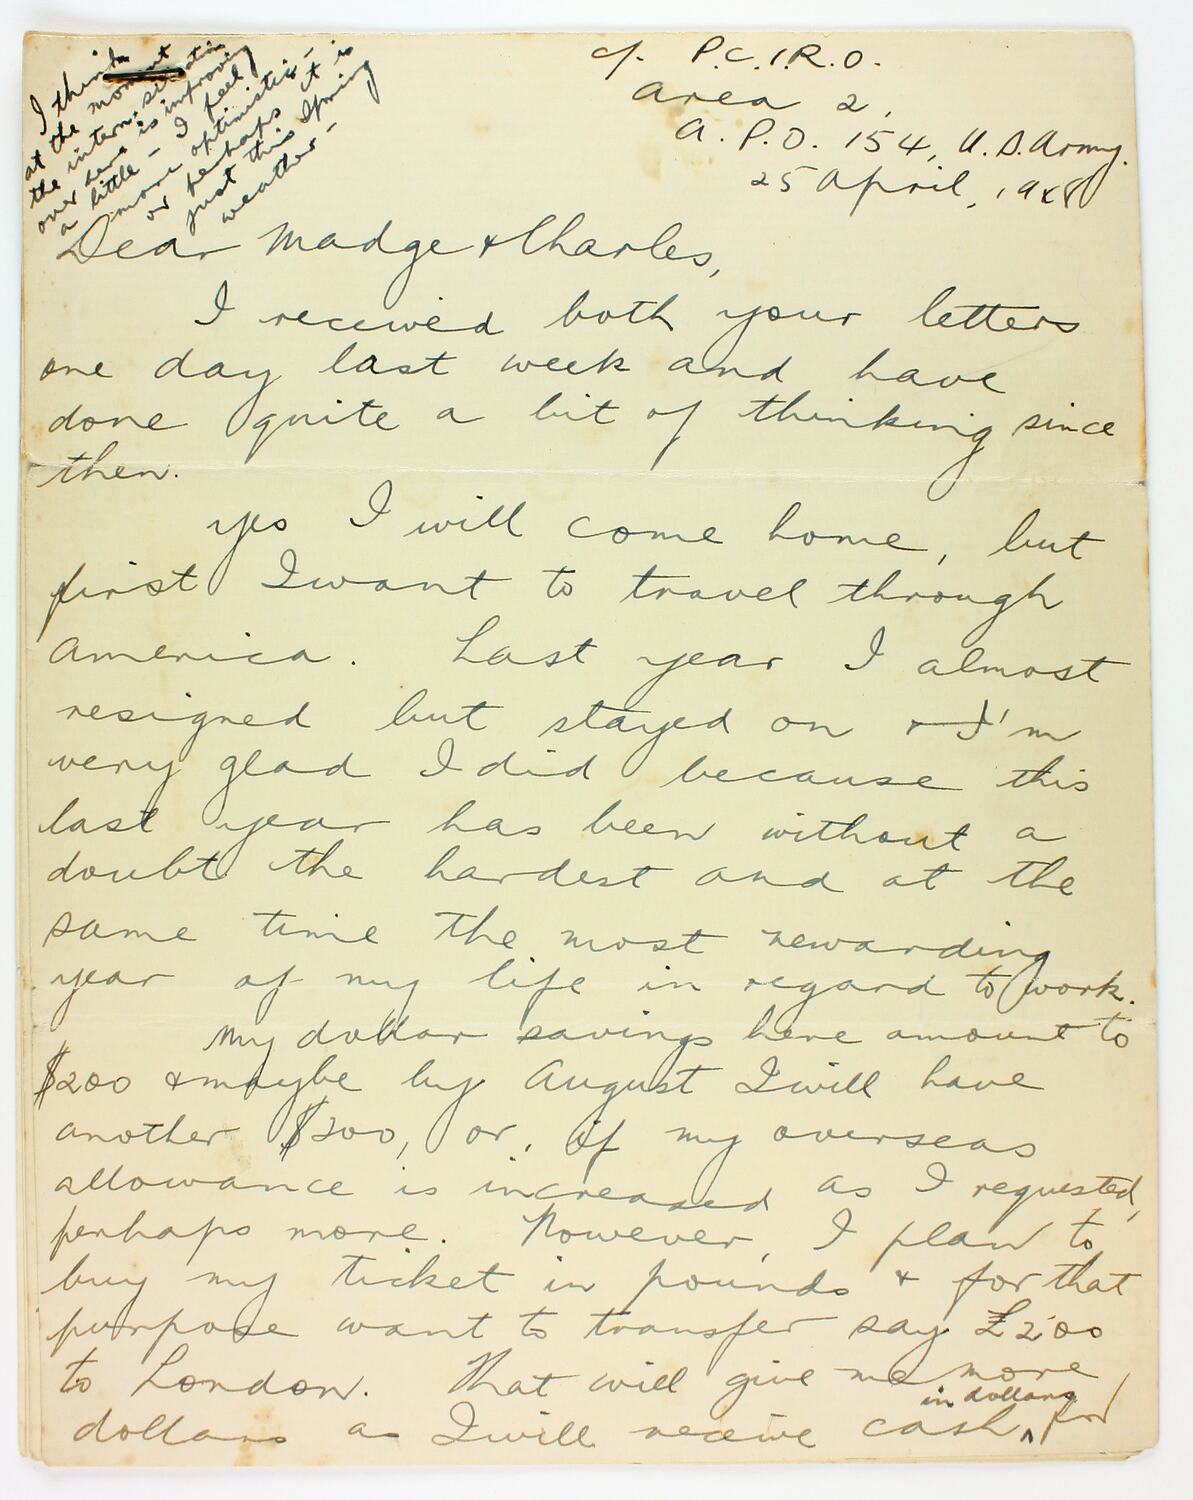 I think
at the moment
the intern. situation
over here is improving
a little - I feel
more optimistic -
or perhaps it is
just this Spring
weather -
c/- P.C.I.R.O.
Area 2,
A.P.O. 154, U.S. Army.
25 April, 1948
Dear Madge & Charles,
I received both your letters
one day last week and have
done quite a bit of thinking since
then.
Yes I will come home, but
first I want to travel through
America. Last year I almost
resigned but stayed on & I'm
very glad I did because this
last year has been without a
doubt the hardest and at the
same time the most rewarding
year of my life in regard to work.
My dollar savings here amount to
$200 & maybe by August I will have
another $200, or, if my overseas
allowance is increased as I requested,
perhaps more. However, I plan to
buy my ticket in pounds & for that
purpose want to transfer say £200
to London. That will give me more
dollars as I will receive cash in dollars for